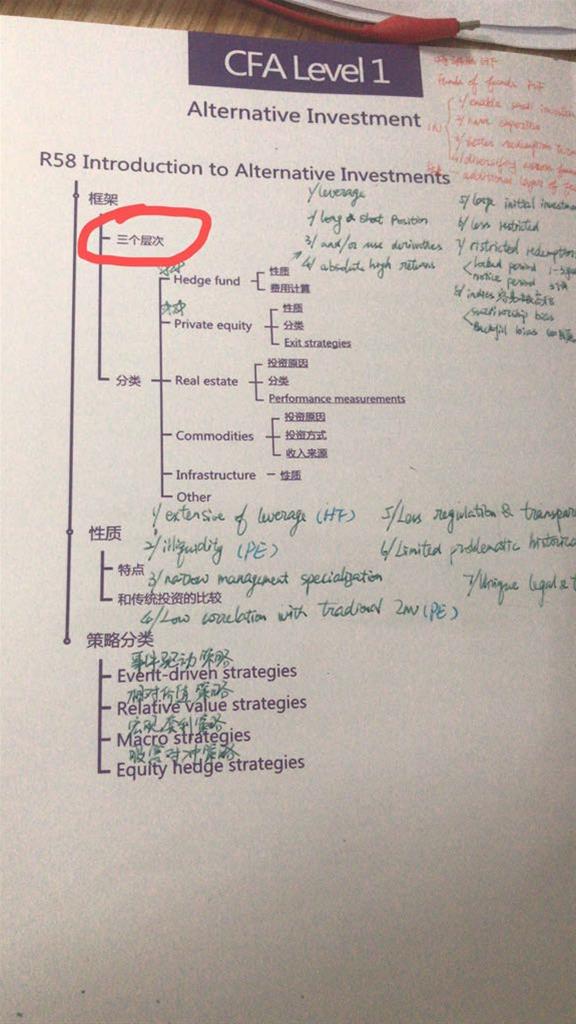 CFA Level 1
Alternative Investment
Funds of funds FOF
R58 Introduction to Alternative Investments
框架
三个层次
1/ leverage
2/ long & short Position
3/ and/or use derivatives
4/ absolute high returns
5/ large initial investment
6/ less restricted
7/ restricted redemptions
notice period
survivorship bias
Backfill bias
Hedge fund
性质
费用计算
Private equity
性质
分类
Exit strategies
分类
Real estate
投资原因
分类
Performance measurements
Commodities
投资原因
投资方式
收入来源
Infrastructure
性质
Other
1/ extensive of leverage (HF)
5/ Less regulation &
性质
2/ illiquidity (PE)
6/ Limited problematic
特点
3/ narrow management specialization
7/ Unique legal &
和传统投资的比较
4/ Low correlation with tradional Inv (PE)
策略分类
事件驱动策略
Event-driven strategies
相对价值策略
Relative value strategies
宏观套利策略
Macro strategies
股票对冲策略
Equity hedge strategies